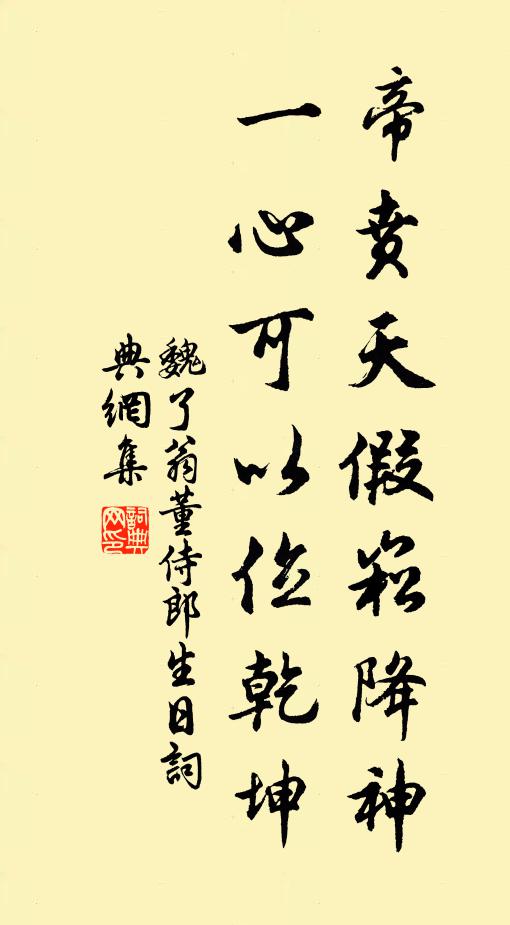 帝賚天假崧降神
一心可以位乾坤
魏了翁董侍郎生日詞
典網集
詞典網印